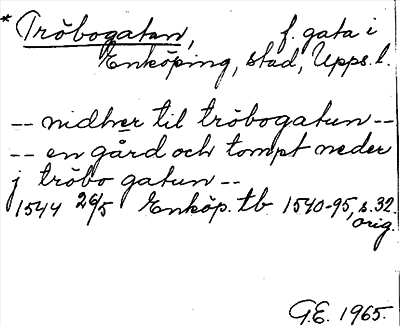 * Tröbogatan, f. gata i
Enköping, stad, Upps. l.
-- nidher til tröbogatun --
-- en gård och tompt neder
j tröbo gatun --
1544 26/5 Enköp. tb 1540-95, s. 32.
orig.
G.E. 1965.